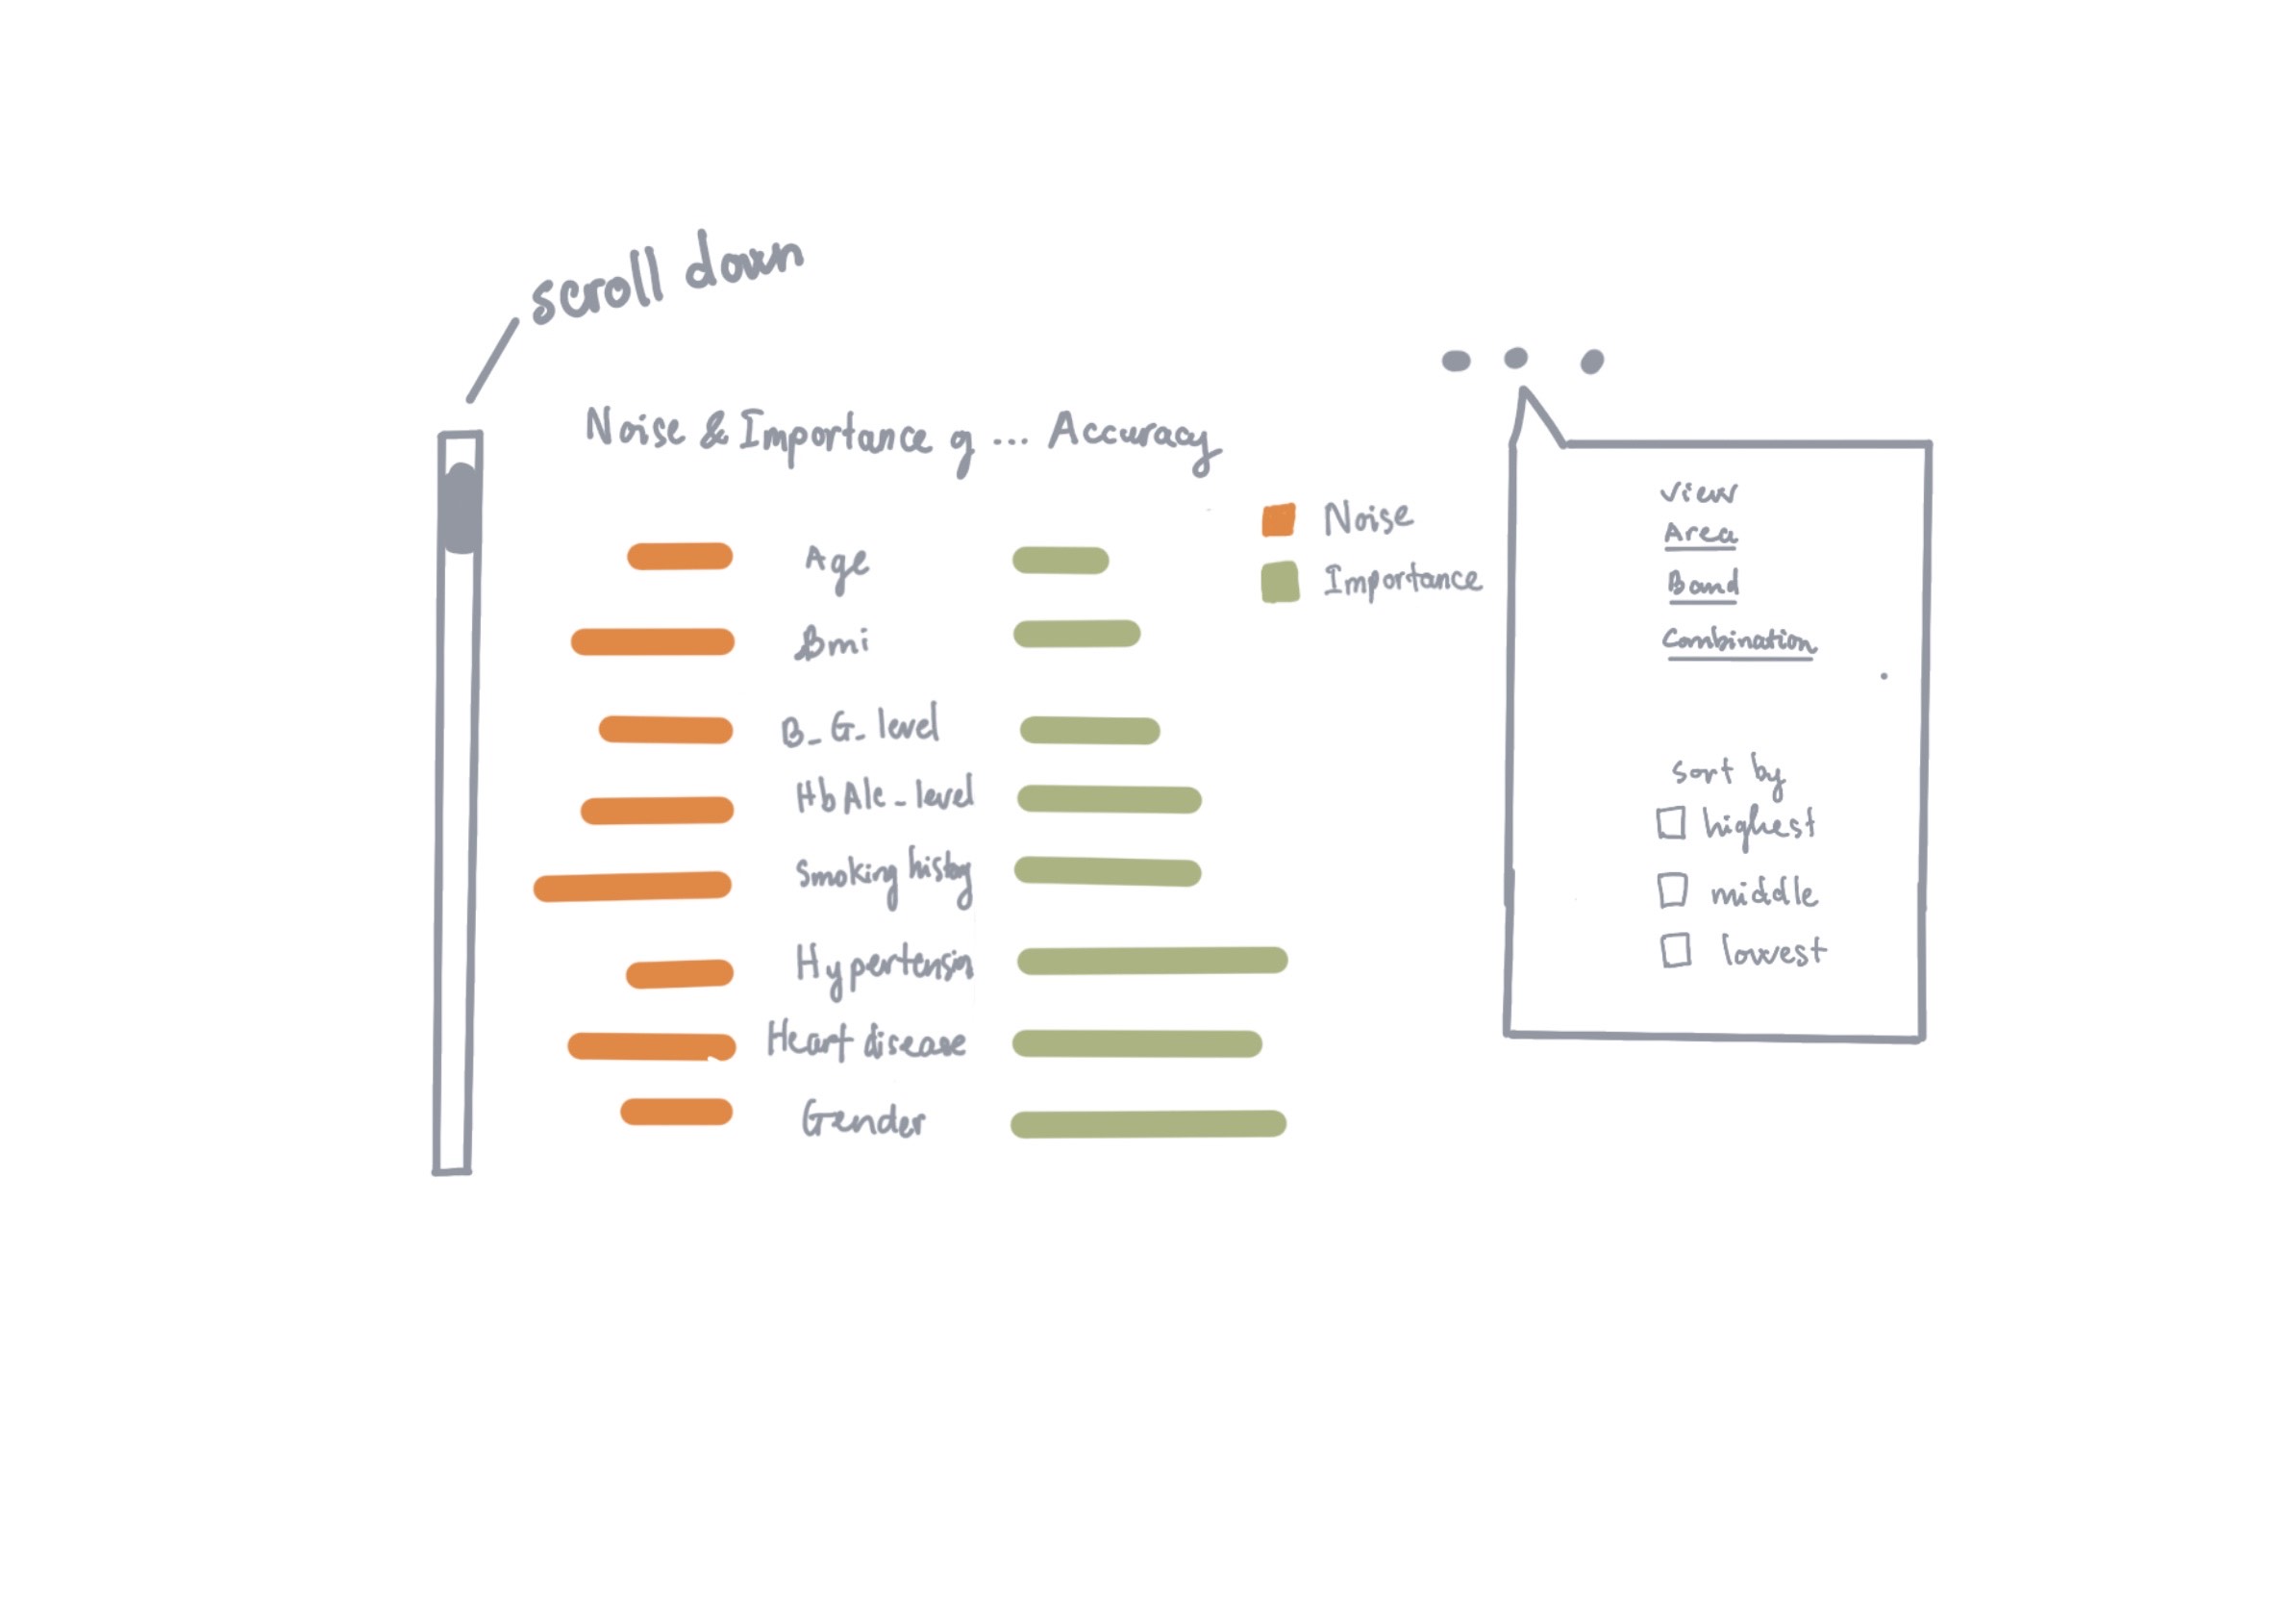 scroll down
Noise & Importance of ... Accuracy
Noise
Importance
Age
Bmi
B_G_level
HbA1c_level
Smoking history
Hypertension
Heart disease
Gender
view
Area
Band
Combination
sort by
highest
middle
lowest